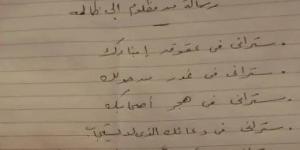 رسالة من مظلوم إلى ظالمه
ستراني في عقوق إبنائك
ستراني في غدر من حولك
ستراني في هجر أصحابك
ستراني في دعائك الذى لا يستجاب